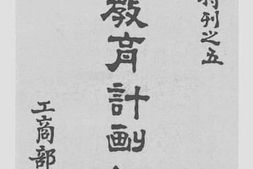 特刊之五
教育計劃
工商部